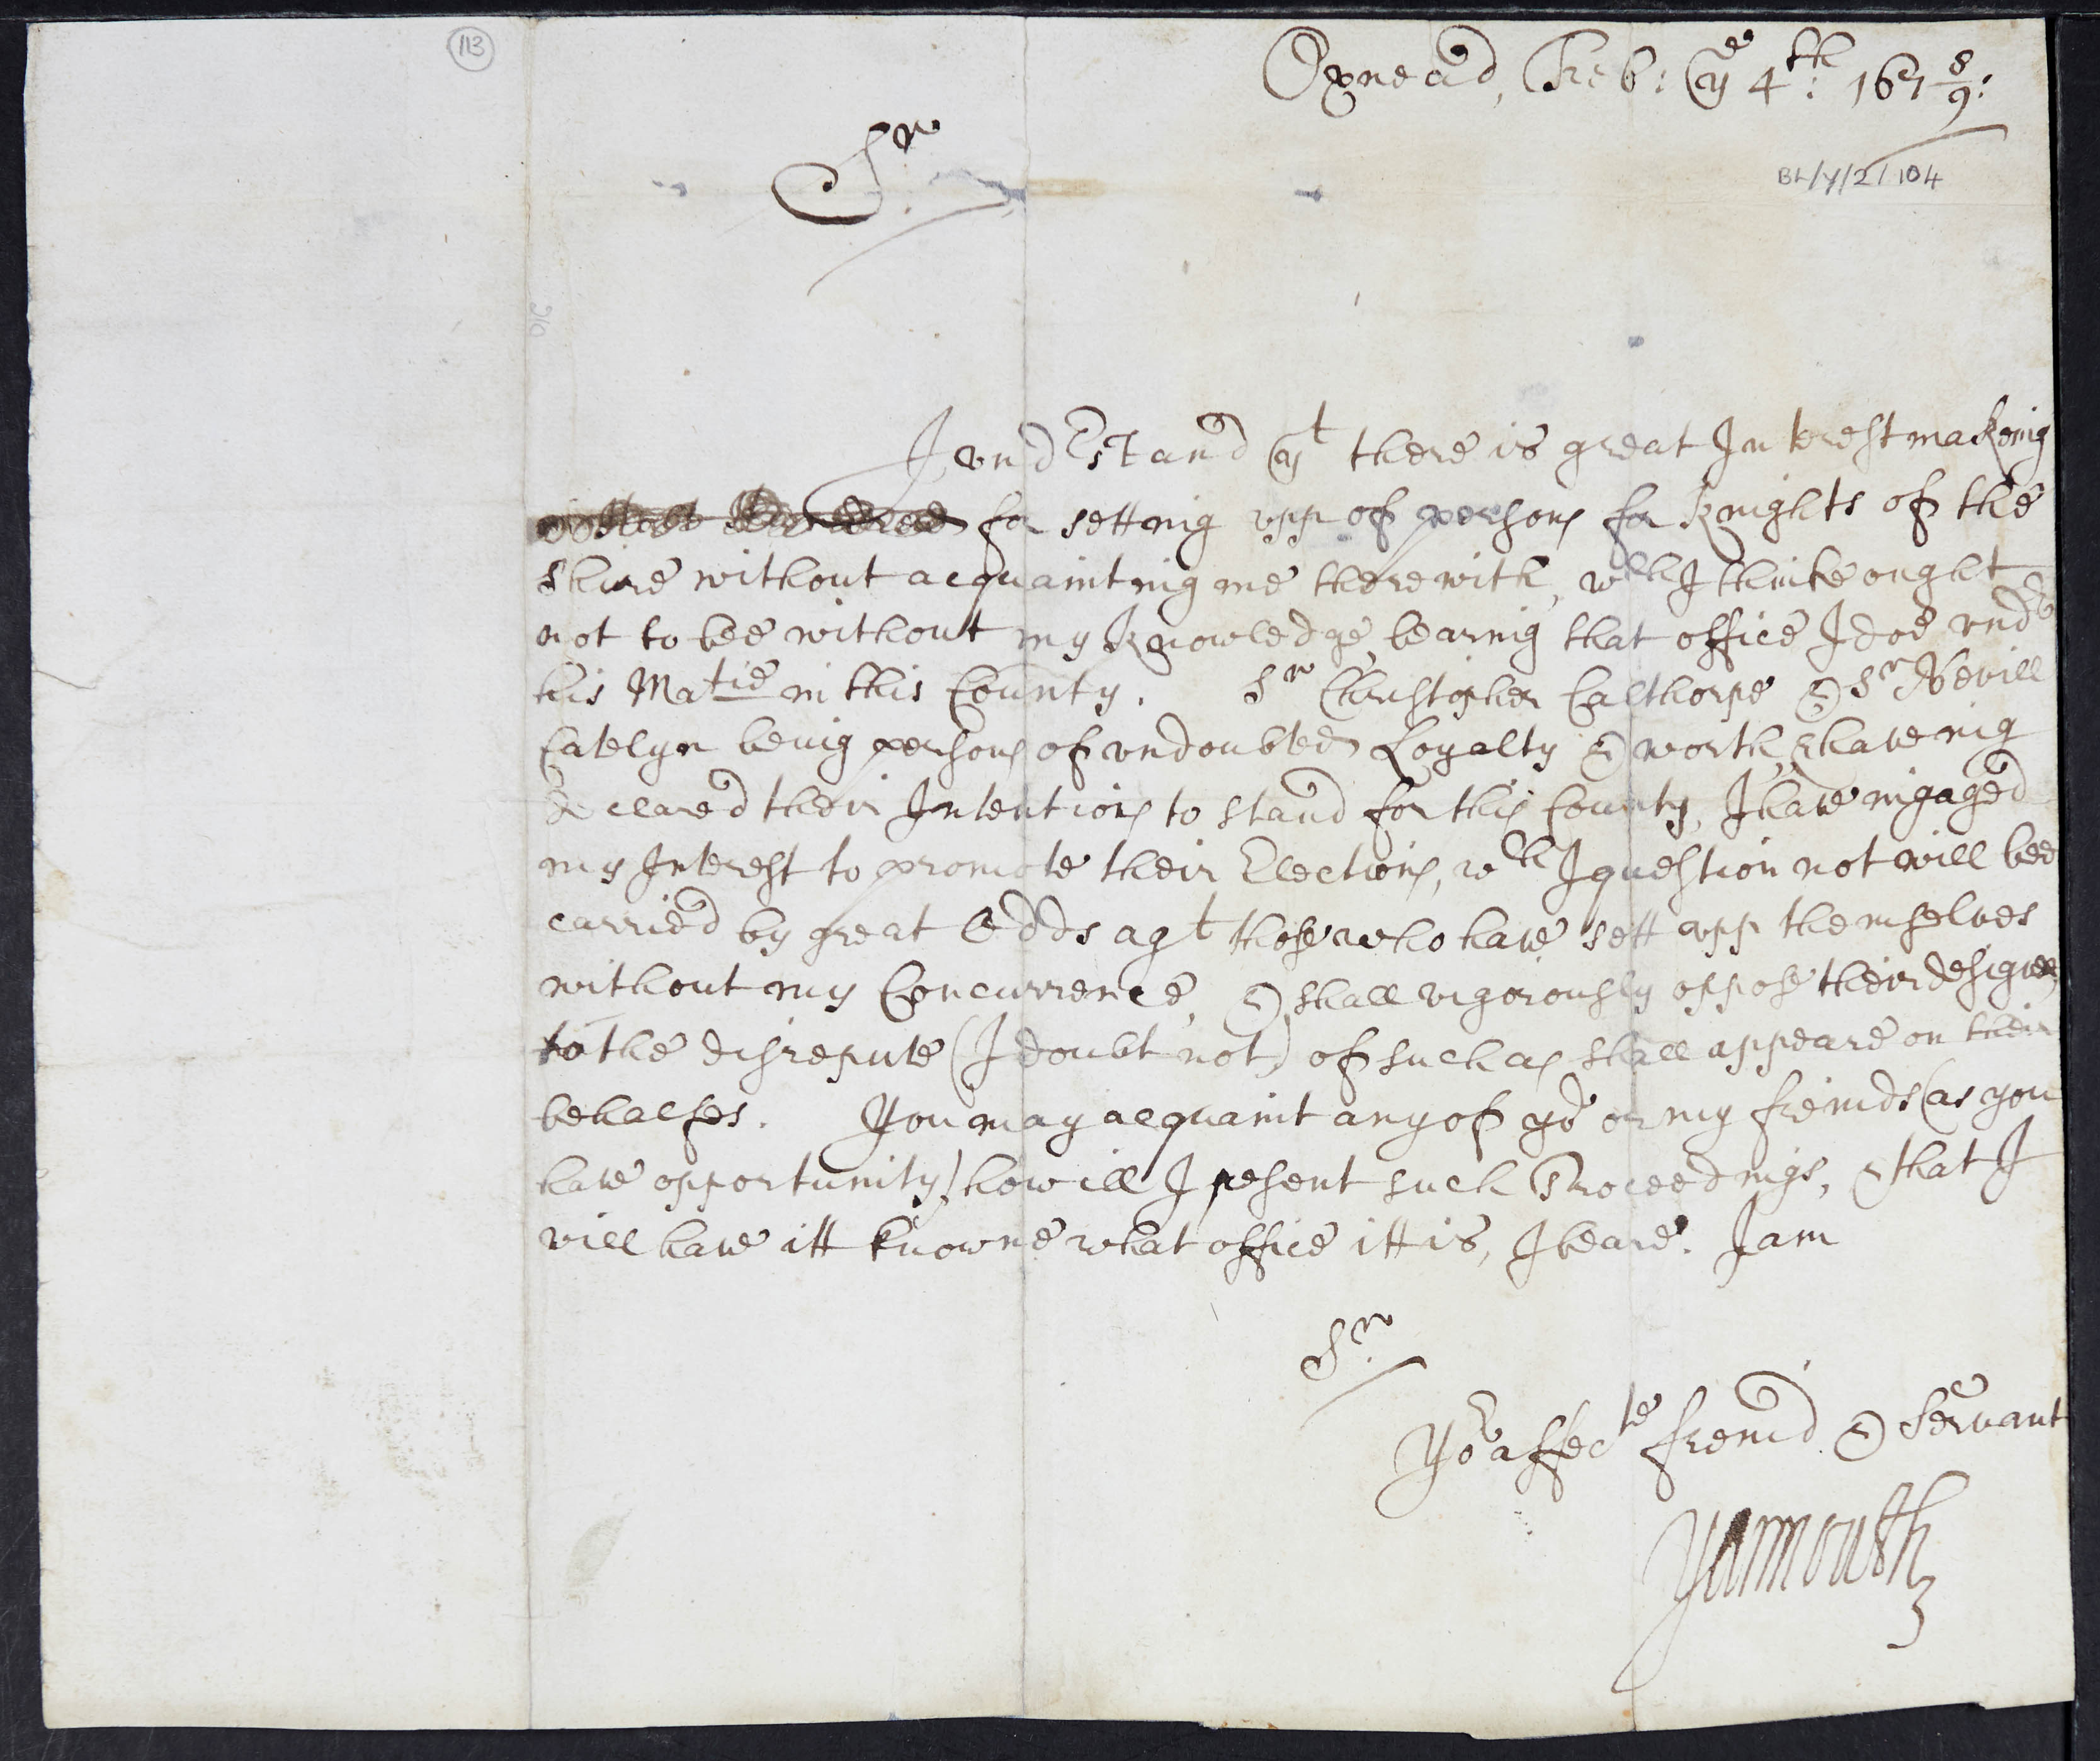 113
Oxnead, Feb: yᵉ 4ᵗʰ: 167 8/9:
BL/Y/2/104
Sʳ
I vndʳstand yᵗ there is great Interest makeing
for setting vpp of persons for Knights of the
Shire without acquainting me therewith, wᶜʰ I thinke ought
not to bee without my Knowledge, bearing that office I doe vndʳ
his Maᵗⁱᵉ in this County. Sʳ Christopher Calthorpe & Sʳ Nevill
Catelyn being persons of vndoubted Loyalty & worth, & haveing
declared their Intentions to stand for this County, I have ingaged
my Interest to promote their Elections, wᶜʰ I question not will bee
carried by great Odds agᵗ those who have sett vpp themselves
without my Concurrence, & shall vigorously oppose their designes,
to the disrepute (I doubt not) of such as shall appeare on their
behalfes. You may acquaint any of yoʳ or my freinds (as you
have opportunity) how ill I resent such Proceedings, & that I
will have itt knowne what office itt is, I beare. I am
Sʳ
Yoʳ affecᵗᵉ freind & Servant
Yarmouth